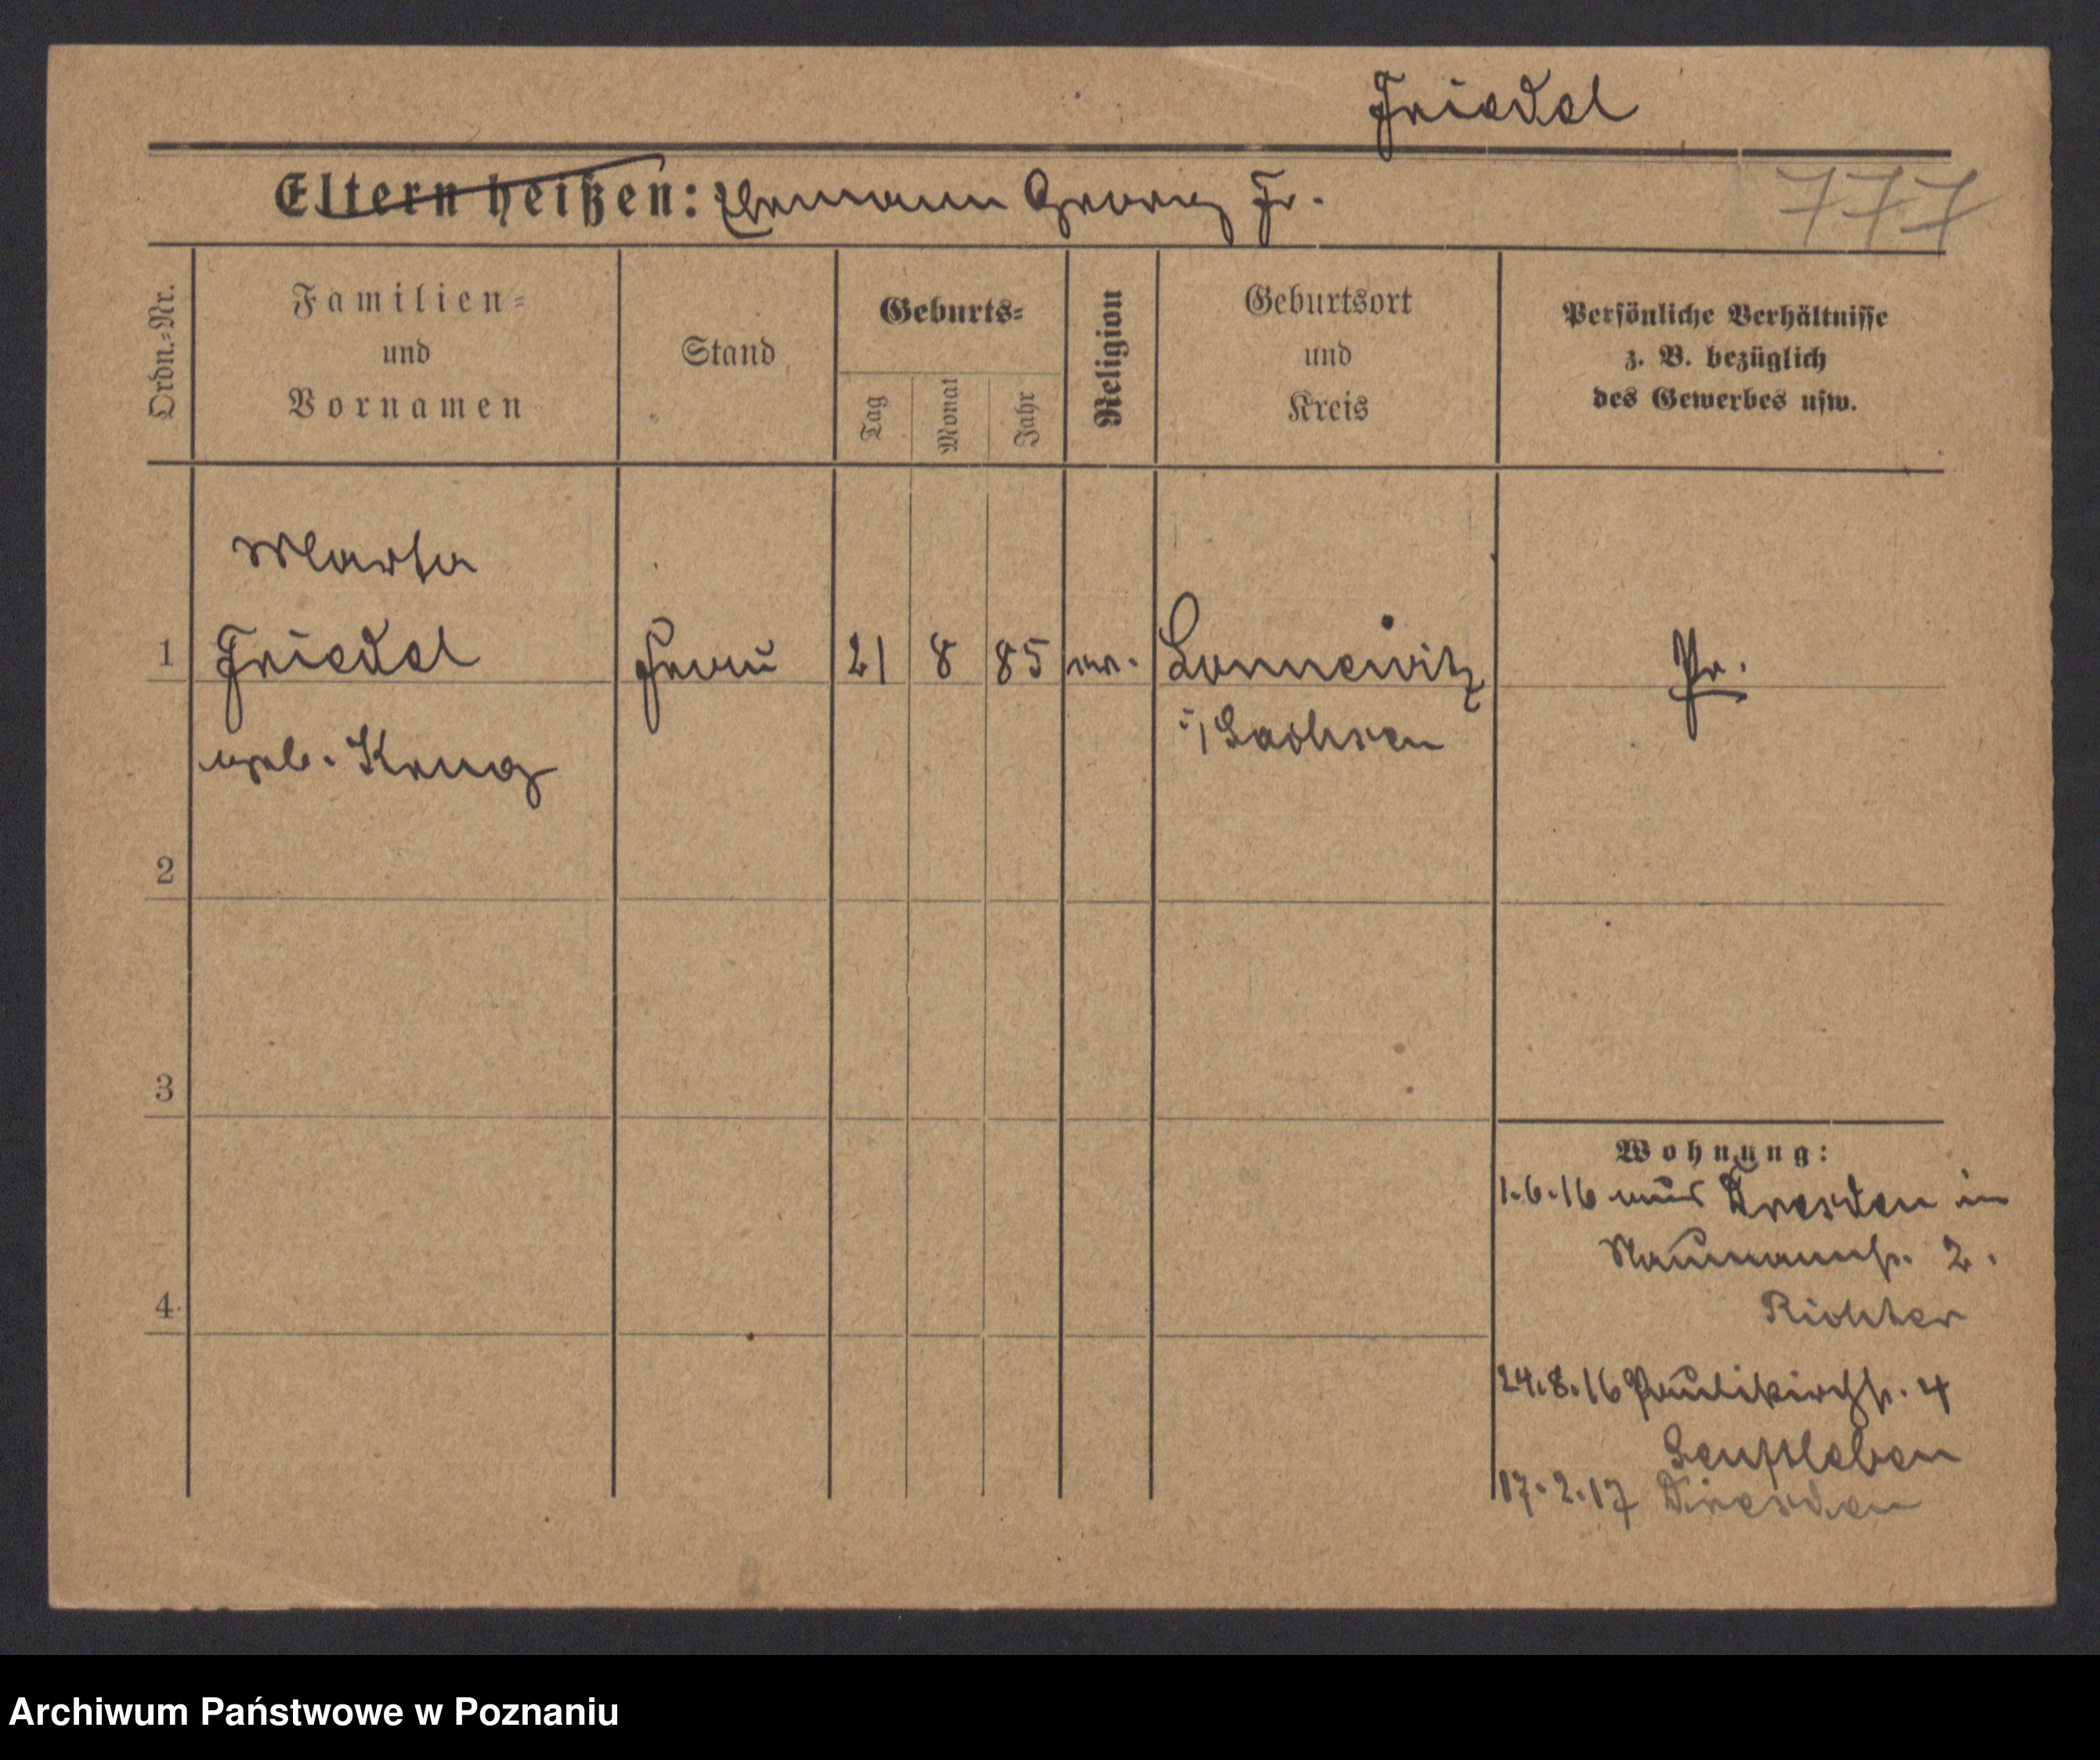 Friedel
Eltern heißen: Ehemann Georg Fr.
777
Ordn.-Nr.
Familien-
und
Vornamen
Stand
Geburts-
Tag
Monat
Jahr
Religion
Geburtsort
und
Kreis
Persönliche Verhältnisse
z. B. bezüglich
des Gewerbes usw.
Marta
1 Friedel Frau 21 8 85 ev. Lonnewitz Pr.
geb. Krug i/Sachsen
2
3
Wohnung:
1.6.16 aus Dresden in
Naumannstr. 2.
Richter
4
24.8.16 Paulikirchstr. 4
Senftleben
17.2.17 Dresden
Archiwum Państwowe w Poznaniu